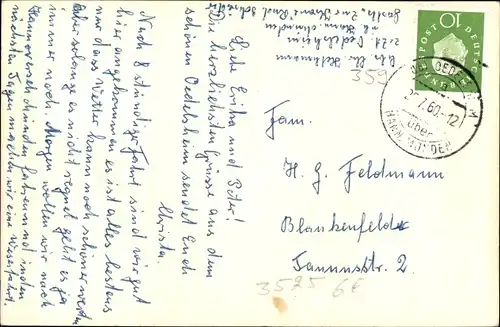 Liebe Erika und Peter!
Die herzlichsten Grüsse aus dem
schönen Oedelsheim sendet Euch
Christa.
Nach 8 stündiger Fahrt sind wir gut
hier angekommen es ist alles bestens
nur das Wetter kann noch schöner werden
aber solange es nicht regnet geht es ja
immer noch. Morgen wollen wir nach
Hannoversch münden fahren und in den
nächsten Tagen machen wir eine Weserfahrt.
z.Zt. Oedelsheim
359
10
DEUTSCHE
BUNDESPOST
OEDELSHEIM
7.60.-12
über
HANN MÜNDEN
Fam.
H. G. Feldmann
Blankenfelde
Tannnstr. 2
3525 6€